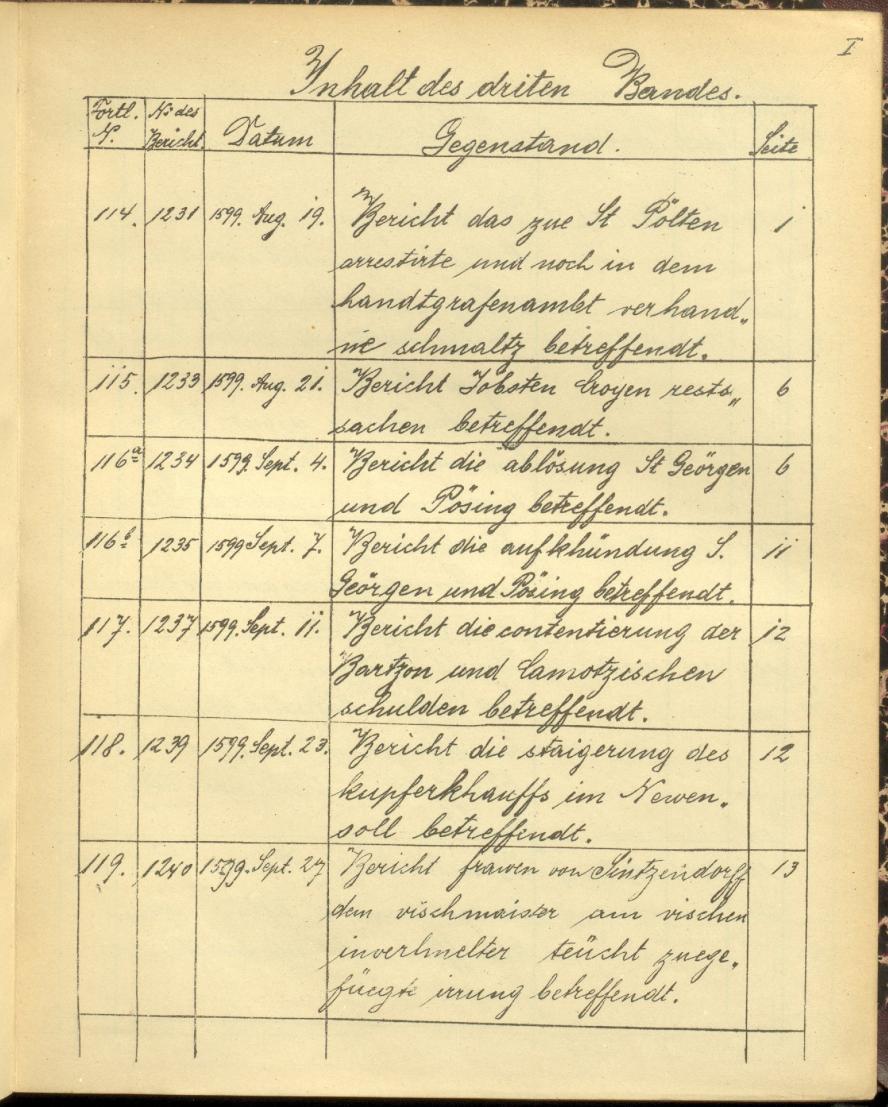 I
Inhalt des driten Bandes.
Fortl. No. | No des Bericht | Datum | Gegenstand. | Seite
114. | 1231 | 1599. Aug. 19. | Bericht das zue St Pölten | 1
arrestirte und noch in dem
handtgrafenambt verhand„
ne schmaltz betreffendt.
115. | 1233 | 1599. Aug. 21. | Bericht Jobsten Croyen rests„ | 6
sachen betreffendt.
116a | 1234 | 1599. Sept. 4. | Bericht die ablösung St Geörgen | 6
und Pösing betreffendt.
116b | 1235 | 1599 Sept. 7. | Bericht die aufkhündung S. | 11
Geörgen und Pösing betreffendt.
117. | 1237 | 1599. Sept. 11. | Bericht die contentierung der | 12
Bartzon und Camotzischen
schulden betreffendt.
118. | 1239 | 1599. Sept. 23. | Bericht die staigerung des | 12
kupferkhauffs im Newen„
soll betreffendt.
119. | 1240 | 1599. Sept. 27 | Bericht frawen von Sintzendorff | 13
dem vischmaister am vischen
teücht zuege„
füegte irrung betreffendt.